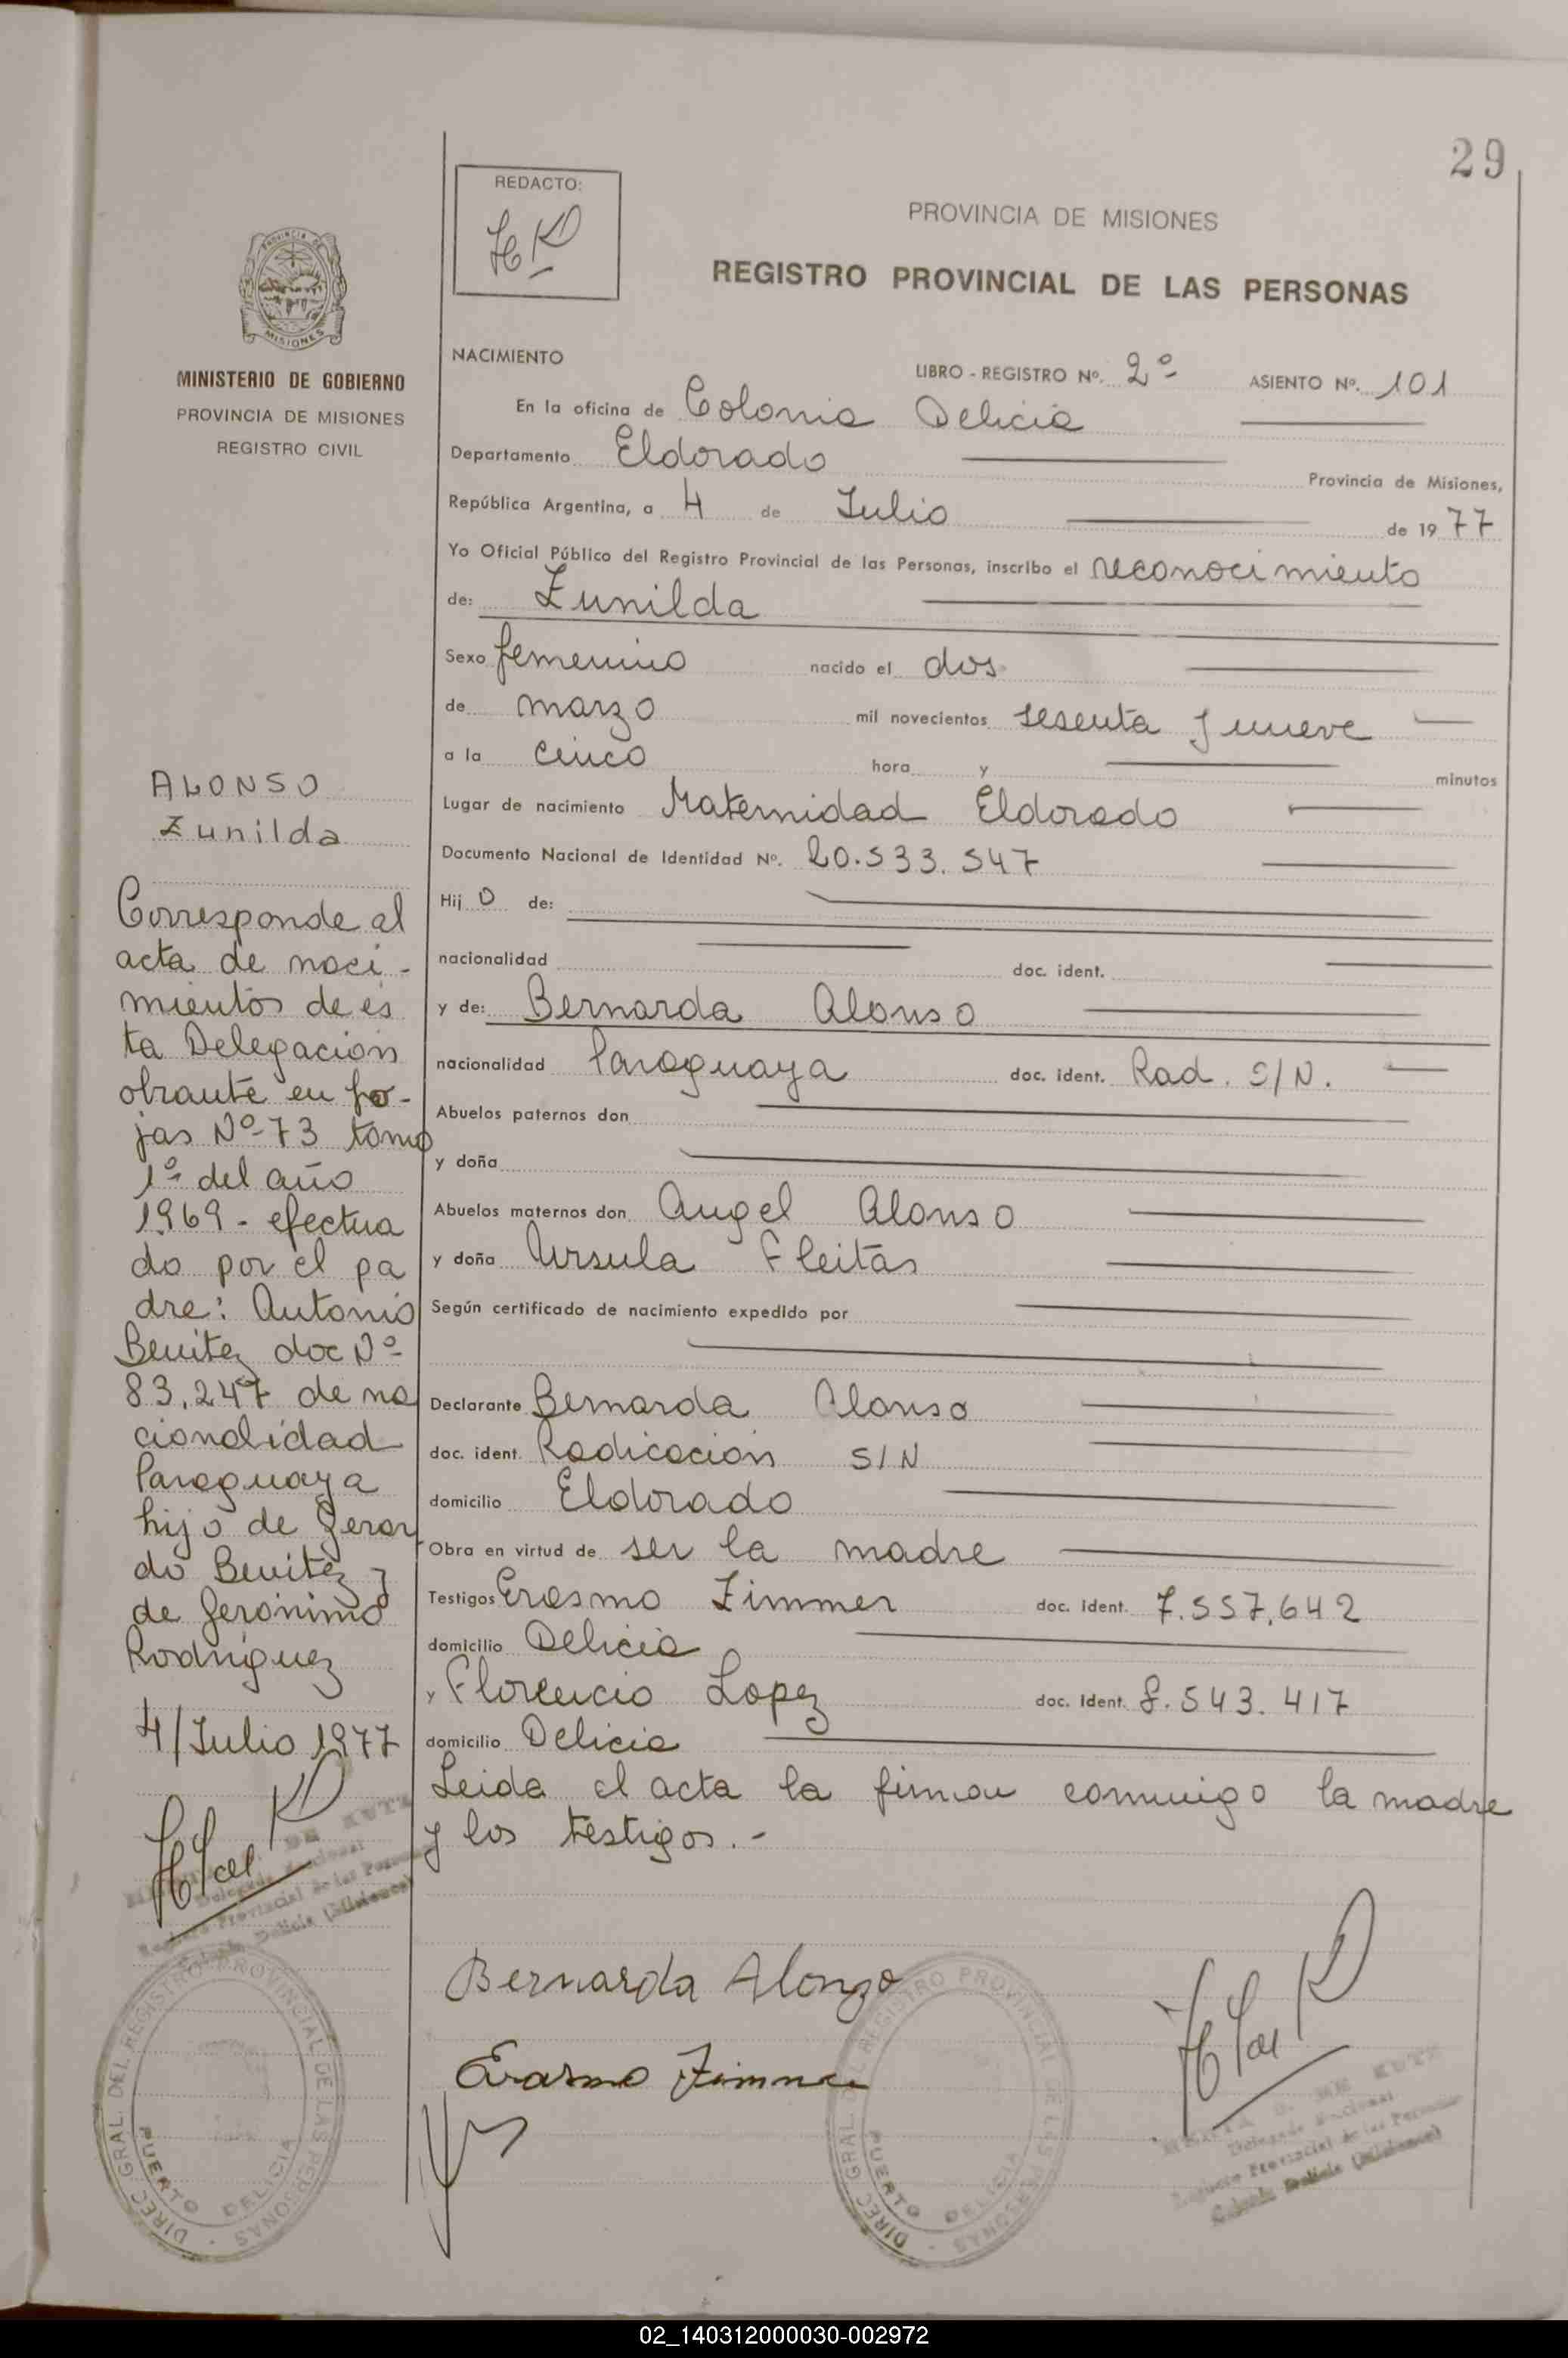 29
REDACTO:
PROVINCIA DE MISIONES
REGISTRO PROVINCIAL DE LAS PERSONAS
MISIONES
MINISTERIO DE GOBIERNO
PROVINCIA DE MISIONES
REGISTRO CIVIL
NACIMIENTO
LIBRO - REGISTRO Nº. 2º ASIENTO Nº. 101
En la oficina de Colonia Delicia
Departamento Eldorado Provincia de Misiones,
República Argentina, a 4 de Julio de 1977
Yo Oficial Público del Registro Provincial de las Personas, inscribo el reconocimiento
de: Zunilda
Sexo femenino nacido el dos
de marzo mil novecientos sesenta y nueve
a la cinco hora y minutos
Lugar de nacimiento Maternidad Eldorado
Documento Nacional de Identidad Nº. 20.533.547
Hij o de:
nacionalidad doc. ident.
y de: Bernarda Alonso
nacionalidad Paraguaya doc. ident. Rad. S/N.
Abuelos paternos don
y doña
Abuelos maternos don Angel Alonso
y doña Ursula Fleitas
Según certificado de nacimiento expedido por
Declarante Bernarda Alonso
doc. ident. Radicación S/N
domicilio Eldorado
Obra en virtud de ser la madre
Testigos Erasmo Zimmer doc. ident. 7.557.642
domicilio Delicia
y Florencio Lopez doc. ident. 8.543.417
domicilio Delicia
Leida el acta la firman conmigo la madre
y los testigos.-
ALONSO
Zunilda
Corresponde al
acta de naci-
mientos de es
ta Delegación
obrante en fo-
jas Nº 73 tomo
1º del año
1969 - efectua
do por el pa
dre: Antonio
Benitez doc Nº
83.247 de na
cionalidad
Paraguaya
hijo de Gerar
do Benitez y
de Geronima
Rodriguez
4/Julio 1977
Bernarda Alonzo
Erasmo Zimmer
DIREC. GRAL. DEL REGISTRO PROVINCIAL DE LAS PERSONAS
PUERTO DELICIA
DIREC. GRAL. DEL REGISTRO PROVINCIAL DE LAS PERSONAS
PUERTO DELICIA
Registro Provincial de las Personas
Colonia Delicia (Misiones)
02_140312000030-002972